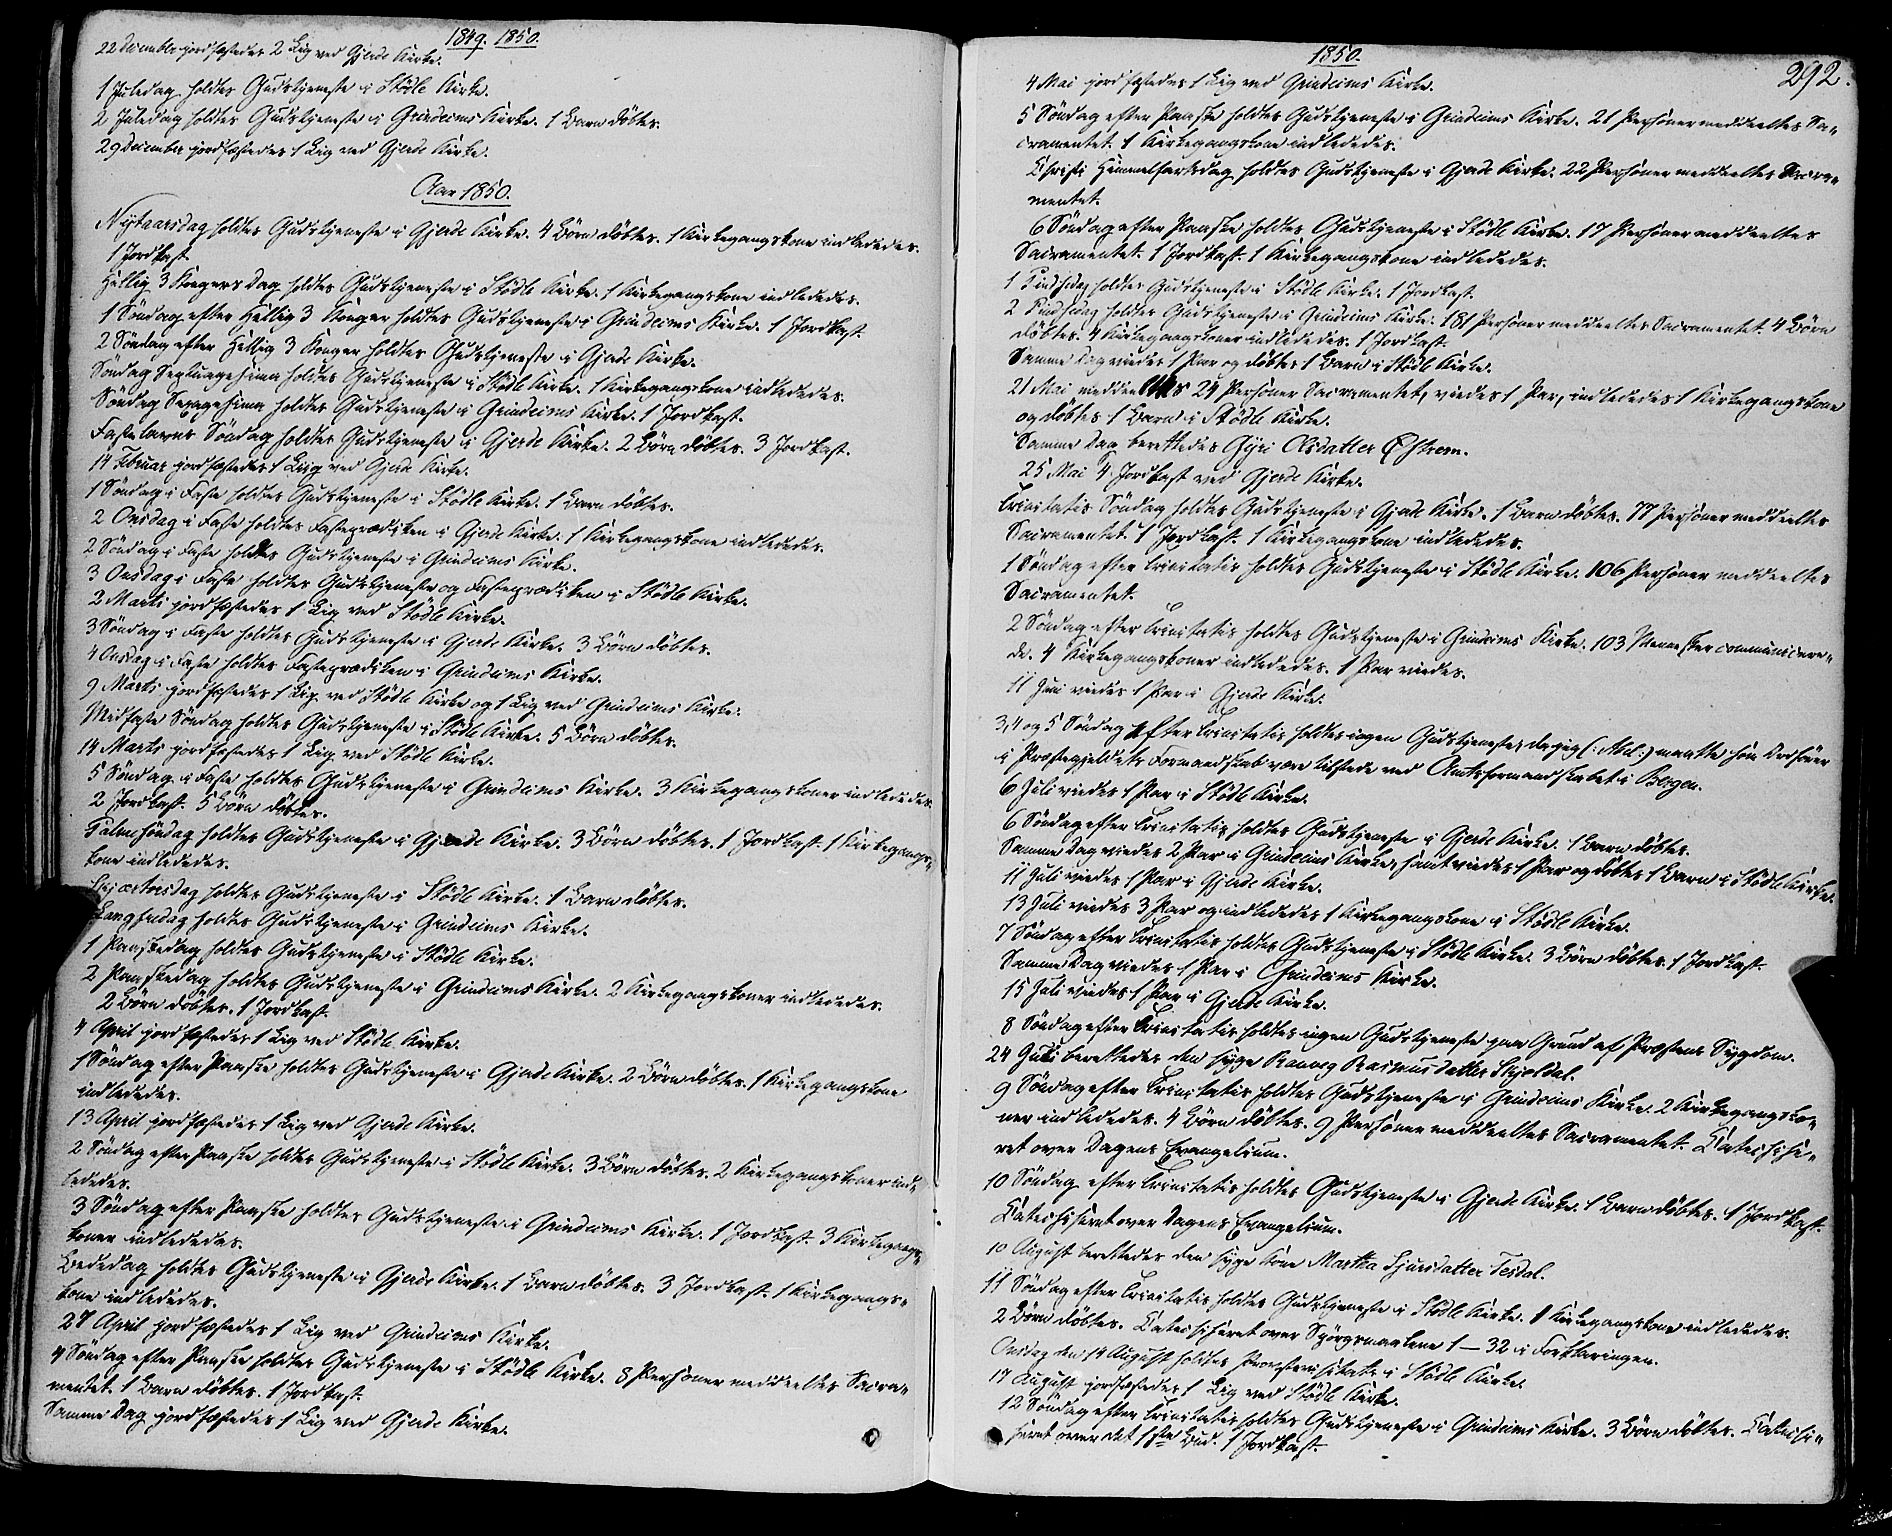 1849. 1850.
22 December jordfæstedes 2 Lig ved Gjerde Kirke.
1 Juledag holdtes Gudstjeneste i Stødle Kirke.
2 Juledag holdtes Gudstjeneste i Grindeims Kirke. 1 Barn døbtes.
29 December jordfæstedes 1 Lig ved Gjerde Kirke.
Aar 1850.
Nytaarsdag holdtes Gudstjeneste i Gjerde Kirke. 4 Børn døbtes. 1 Kirkegangskone indlededes.
1 Jordkast.
Hellig 3 Kongers Dag holdtes Gudstjeneste i Stødle Kirke. 1 Kirkegangskone indlededes.
1 Søndag efter Hellig 3 Konger holdtes Gudstjeneste i Grindeims Kirke. 1 Jordkast.
2 Søndag efter Hellig 3 Konger holdtes Gudstjeneste i Gjerde Kirke.
Søndag Septuagesima holdtes Gudstjeneste i Stødle Kirke. 1 Kirkegangskone indlededes.
Søndag Sexagesima holdtes Gudstjeneste i Grindeims Kirke. 1 Jordkast.
Fastelavns Søndag holdtes Gudstjeneste i Gjerde Kirke. 2 Børn døbtes. 3 Jordkast.
14 Februar jordfæstedes 1 Liig ved Gjerde Kirke.
1 Søndag i Faste holdtes Gudstjeneste i Stødle Kirke. 1 Barn døbtes.
2 Onsdag i Faste holdtes Fasteprædiken i Gjerde Kirke. 1 Kirkegangskone indlededes.
2 Søndag i Faste holdtes Gudstjeneste i Grindeims Kirke.
3 Onsdag i Faste holdtes Gudstjeneste og Fasteprædiken i Stødle Kirke.
2 Marts jordfæstedes 1 Lig ved Stødle Kirke.
3 Søndag i Faste holdtes Gudstjeneste i Gjerde Kirke. 3 Børn døbtes.
4 Onsdag i Faste holdtes Fasteprædiken i Grindeims Kirke.
9 Marts jordfæstedes 1 Lig ved Stødle Kirke og 1 Lig ved Grindeims Kirke.
Midfaste Søndag holdtes Gudstjeneste i Stødle Kirke. 5 Børn døbtes.
14 Marts jordfæstedes 1 Lig ved Stødle Kirke.
5 Søndag i Faste holdtes Gudstjeneste i Grindeims Kirke. 3 Kirkegangskoner indlededes.
2 Jordkast. 5 Børn døbtes.
Palmesøndag holdtes Gudstjeneste i Gjerde Kirke. 3 Børn døbtes. 1 Jordkast. 1 Kirkegangs-
kone indlededes.
Skjærtorsdag holdtes Gudstjeneste i Stødle Kirke. 1 Barn døbtes.
Langfredag holdtes Gudstjeneste i Grindeims Kirke.
1 Paaskedag holdtes Gudstjeneste i Stødle Kirke.
2 Paaskedag holdtes Gudstjeneste i Grindeims Kirke. 2 Kirkegangskoner indlededes.
2 Børn døbtes. 1 Jordkast.
4 April jordfæstedes 1 Lig ved Stødle Kirke.
1 Søndag efter Paaske holdtes Gudstjeneste i Gjerde Kirke. 2 Børn døbtes. 1 Kirkegangskone
indlededes.
13 April jordfæstedes 1 Lig ved Gjerde Kirke.
2 Søndag efter Paaske holdtes Gudstjeneste i Stødle Kirke. 3 Børn døbtes. 2 Kirkegangskoner ind-
lededes.
3 Søndag efter Paaske holdtes Gudstjeneste i Grindeims Kirke. 1 Jordkast. 3 Kirkegangs-
koner indlededes.
Bededag holdtes Gudstjeneste i Gjerde Kirke. 1 Barn døbtes. 3 Jordkast. 1 Kirkegangs-
kone indlededes.
27 April jordfæstedes 1 Lig ved Grindeims Kirke.
4 Søndag efter Paaske holdtes Gudstjeneste i Stødle Kirke. 8 Personer meddeeltes Sacra-
mentet. 1 Barn døbtes. 1 Jordkast.
Samme Dag jordfæstedes 1 Lig ved Gjerde Kirke.
1850.
292.
4 Mai jordfæstedes 1 Lig ved Grindeims Kirke.
5 Søndag efter Paaske holdtes Gudstjeneste i Grindeims Kirke. 21 Personer meddeeltes Sa-
cramentet. 1 Kirkegangskone indlededes.
Christi Himmelfartsdag holdtes Gudstjeneste i Gjerde Kirke. 22 Personer meddeeltes Sacra-
mentet.
6 Søndag efter Paaske holdtes Gudstjeneste i Stødle Kirke. 17 Personer meddeeltes
Sacramentet. 1 Jordkast. 1 Kirkegangskone indlededes.
1 Pindsedag holdtes Gudstjeneste i Stødle Kirke. 1 Jordkast.
2 Pindsedag holdtes Gudstjeneste i Grindeims Kirke. 181 Personer meddeeltes Sacramentet. 4 Børn
døbtes. 4 Kirkegangskoner indlededes. 1 Jordkast.
Samme Dag viedes 1 Par og døbtes 1 Barn i Stødle Kirke.
21 Mai meddeeltes 24 Personer Sacramentet, viedes 1 Par, indlededes 1 Kirkegangskone
og døbtes 1 Barn i Stødle Kirke.
Samme Dag berettedes Gyri Olsdatter Østrem.
25 Mai 4 Jordkast ved Gjerde Kirke.
Trinitatis Søndag holdtes Gudstjeneste i Gjerde Kirke. 1 Barn døbtes. 77 Personer meddeeltes
Sacramentet. 1 Jordkast. 1 Kirkegangskone indlededes.
1 Søndag efter Trinitatis holdtes Gudstjeneste i Stødle Kirke. 106 Personer meddeeltes
Sacramentet.
2 Søndag efter Trinitatis holdtes Gudstjeneste i Grindeims Kirke. 103 Mennesker communicere-
de. 4 Kirkegangskoner indlededes. 1 Par viedes.
11 Juni viedes 1 Par i Gjerde Kirke.
3, 4 og 5 Søndag efter Trinitatis holdtes ingen Gudstjeneste, da jeg (: :) maatte som Ordfører
i Præstegjeldets Formandskab være tilstede ved Amtsformandskabet i Bergen.
6 Juli viedes 1 Par i Stødle Kirke.
6 Søndag efter Trinitatis holdtes Gudstjeneste i Gjerde Kirke. 1 Barn døbtes.
Samme Dag viedes 2 Par i Grindeims Kirke, samt viedes 1 Par og døbtes 1 Barn i Stødle Kirke.
11 Juli viedes 1 Par i Gjerde Kirke.
13 Juli viedes 3 Par og indlededes 1 Kirkegangskone i Stødle Kirke.
7 Søndag efter Trinitatis holdtes Gudstjeneste i Stødle Kirke. 3 Børn døbtes. 1 Jordkast.
Samme Dag viedes 1 Par i Grindeims Kirke.
15 Juli viedes 1 Par i Gjerde Kirke.
8 Søndag efter Trinitatis holdtes ingen Gudstjeneste paa Grund af Præstens Sygdom.
24 Juli berettedes den syge Ranveg Rasmusdatter Skjoldal.
9 Søndag efter Trinitatis holdtes Gudstjeneste i Grindeims Kirke. 2 Kirkegangsko-
ner indlededes. 4 Børn døbtes. 9 Personer meddeeltes Sacramentet. Catechise-
ret over Dagens Evangelium.
10 Søndag efter Trinitatis holdtes Gudstjeneste i Gjerde Kirke. 1 Barn døbtes. 1 Jordkast.
Catechiseret over Dagens Evangelium.
10 August berettedes den syge Kone Martha Sjursdatter Tesdal.
11 Søndag efter Trinitatis holdtes Gudstjeneste i Stødle Kirke. 1 Kirkegangskone indlededes.
2 Børn døbtes. Catechiseret over Spørgsmaalene 1 — 32 i Forklaringen.
Onsdag den 14 August holdtes Provstevisitats i Stødle Kirke.
17 August jordfæstedes 1 Lig ved Stødle Kirke.
12 Søndag efter Trinitatis holdtes Gudstjeneste i Grindeims Kirke. 3 Børn døbtes. Catechi-
seret over det 1ste Bud. 1 Jordkast.